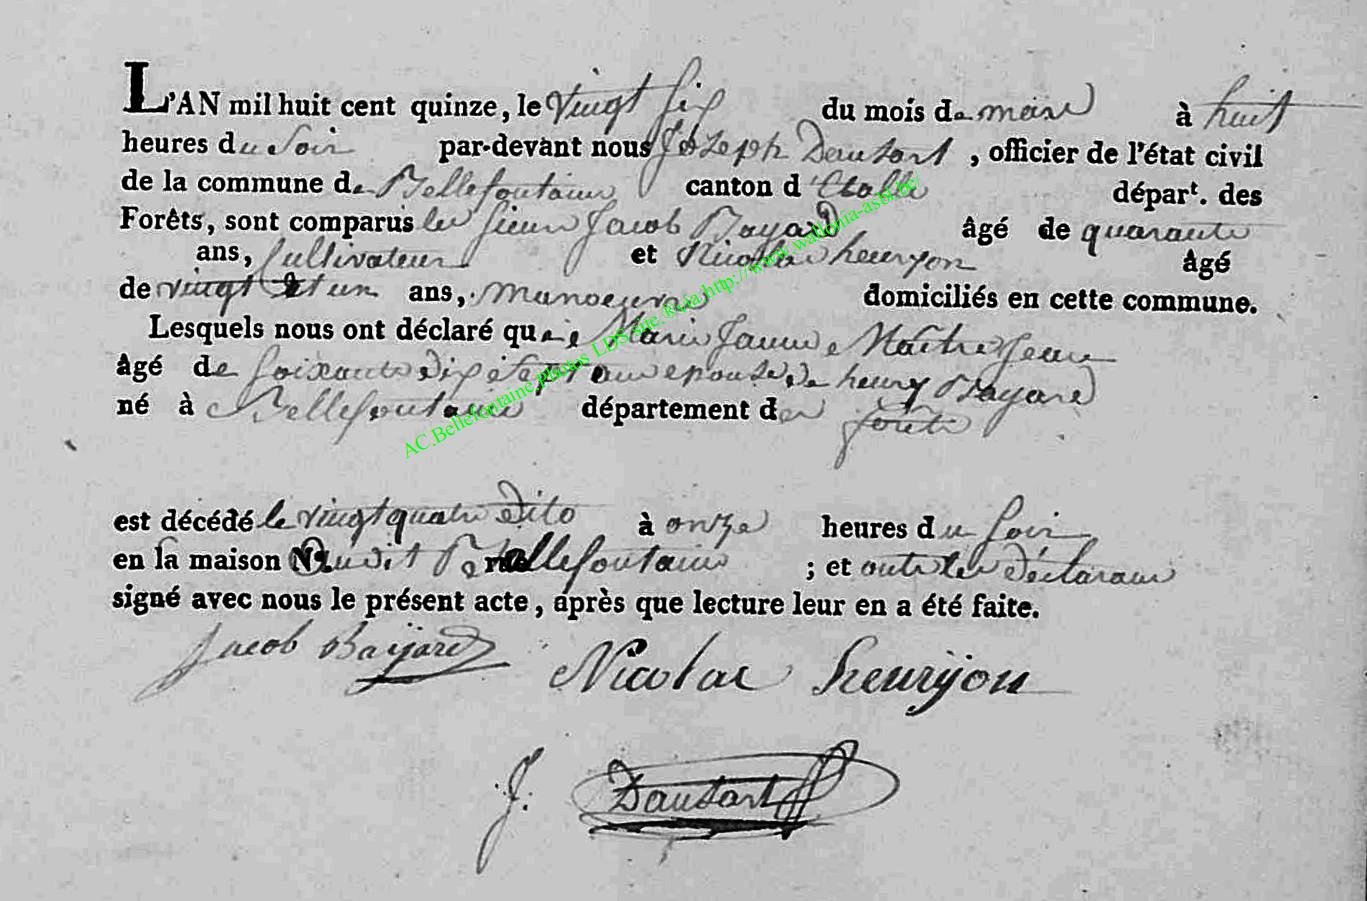 L'AN mil huit cent quinze, le vingt six du mois de mars à huit
heures du soir par-devant nous Joseph Dautart, officier de l'état civil
de la commune de Bellefontaine canton d'Etalle départ. des
Forêts, sont comparus les sieurs Jacob Bayard âgé de quarante
ans, cultivateur et Nicolas henryon âgé
de vingt et un ans, manoeuvre domiciliés en cette commune.
Lesquels nous ont déclaré que Marie Jeanne Maitrejean
âgé de soixante dix sept ans epouse de henry Bayard
né à Bellefontaine département des forêts
est décédé le vingt quatre dito à onze heures du soir
en la maison dudit Bellefontaine ; et ont les déclarans
signé avec nous le présent acte, après que lecture leur en a été faite.
Jacob Baijard Nicolas henrijon
J. Dautart
AC.Bellefontaine.Photos LDS site http://www.wallonia-asbl.be/